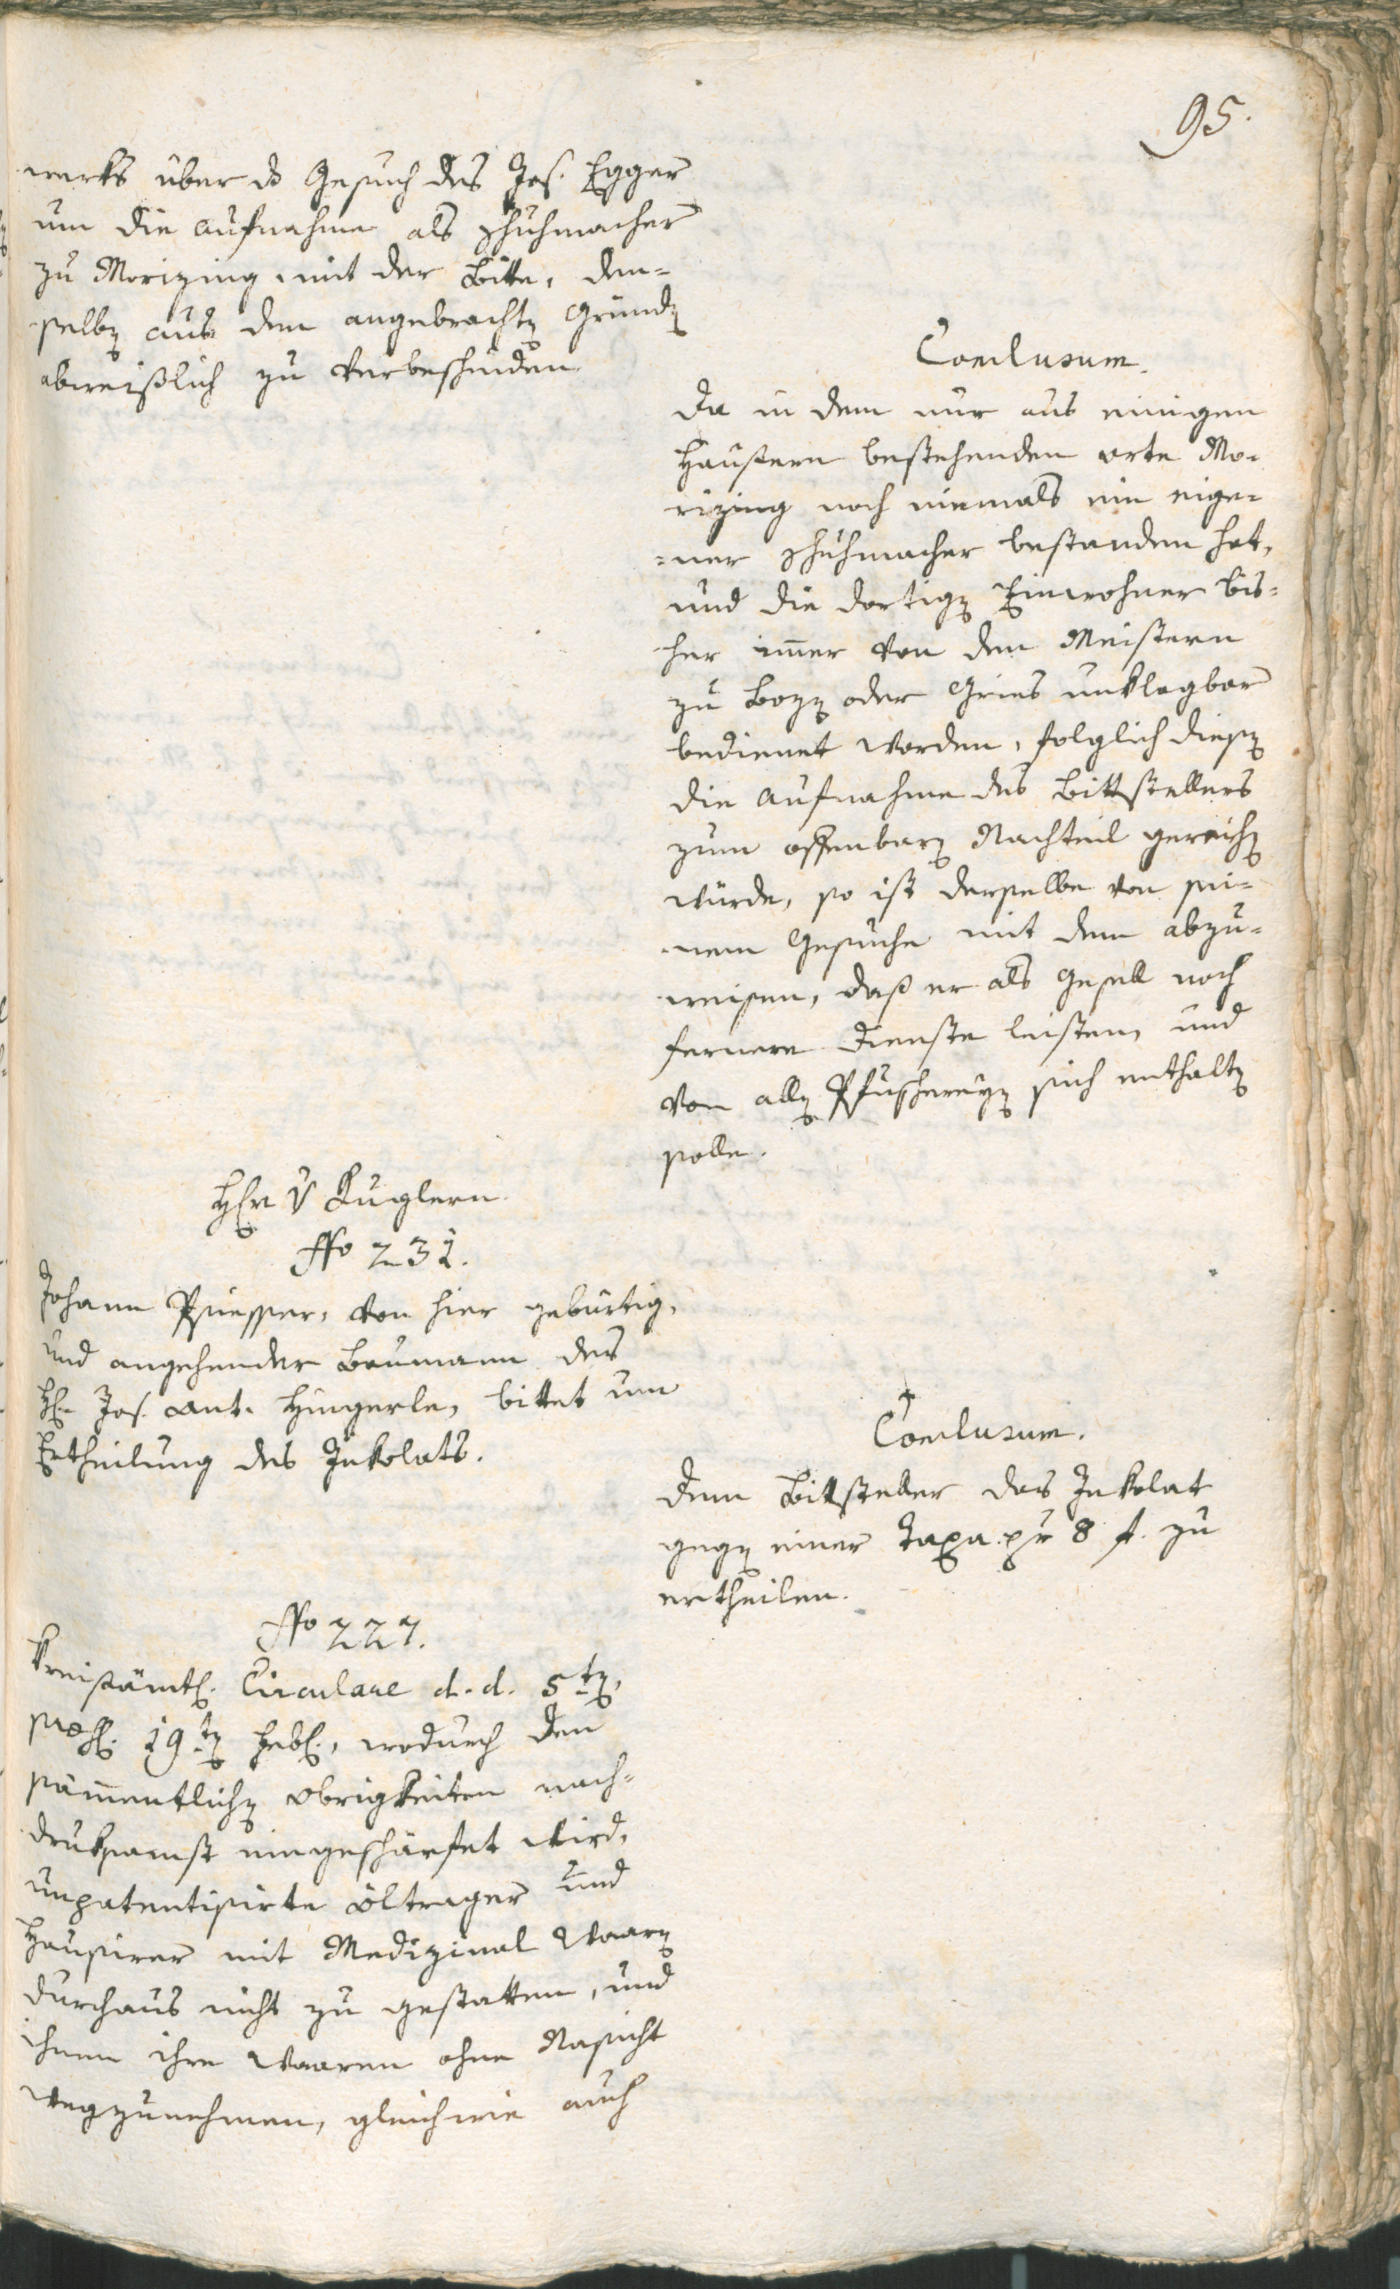 95.
werks über das Gesuch des Jos. Egger
um die Aufnahme als Schuhmacher
zu Morizing mit der Bitte, den-
selben aus den angebrachten Gründen
abweißlich zu verbescheiden.
Conclusum.
Da in dem nur aus einigen
Häusern bestehenden Orte Mo-
rizing noch niemals ein eige-
=ner Schuhmacher bestanden hat,
und die dortigen Einwohner bis-
her immer von den Meistern
zu Bozen oder Gries unklagbar
bedienet worden, folglich diesen
die Aufnahme des Bittstellers
zum offenbaren Nachteil gereichen
würde, so ist derselbe von sei-
nem Gesuche mit dem abzu-
weisen, daß er als Gesell noch
fernere Dienste leisten, und
von allen Pfuschereyen sich enthalten
solle.
Herr v Kuglern.
No 231.
Johann von hier gebürtig,
und angehender Baumann des
H. Jos. Ant. Hingerle, bittet um
Ertheilung des Inkolats.
Conclusum.
Dem Bittsteller das Inkolat
gegen einer Taxa pr 8 f. zu
ertheilen.
No 227.
Kreisämtl. Circulare d. d. 5ten,
praes. 19ten Feb., wodurch den
sämmentlichen Obrigkeiten nach-
druksamst eingeschärfet wird,
unpatentisirte Öltrager und
Hausirer mit Medizinal Waaren
durchaus nicht zu gestatten, und
ihnen ihre Waaren ohne Nachsicht
wegzunehmen, gleichwie auch